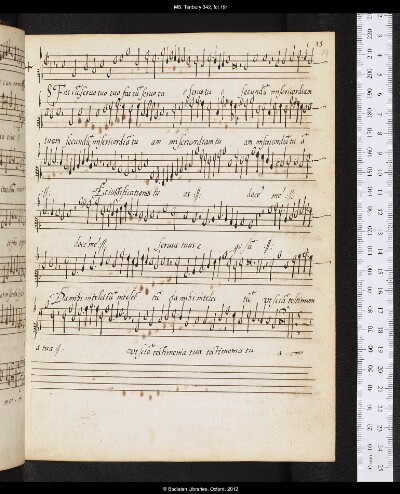 MS. Tenbury 342, fol.19r
19
Fac cū seruo tuo fac cū seruo tu o seruo tu o secundū misericordiam
tuam secundū misericordiā tu am misericordiam tu am misericordiā tu ā
et iustificationes tu as ij. doce me ij.
doce me ij. seruus tuus e go sū ij.
Da mihi intellectū intellec tū da mihi intellec tū vt sciā testimoni
a tua ij. vt sciā testimonia tua testimonia tu a
© Bodleian Libraries, Oxford, 2012